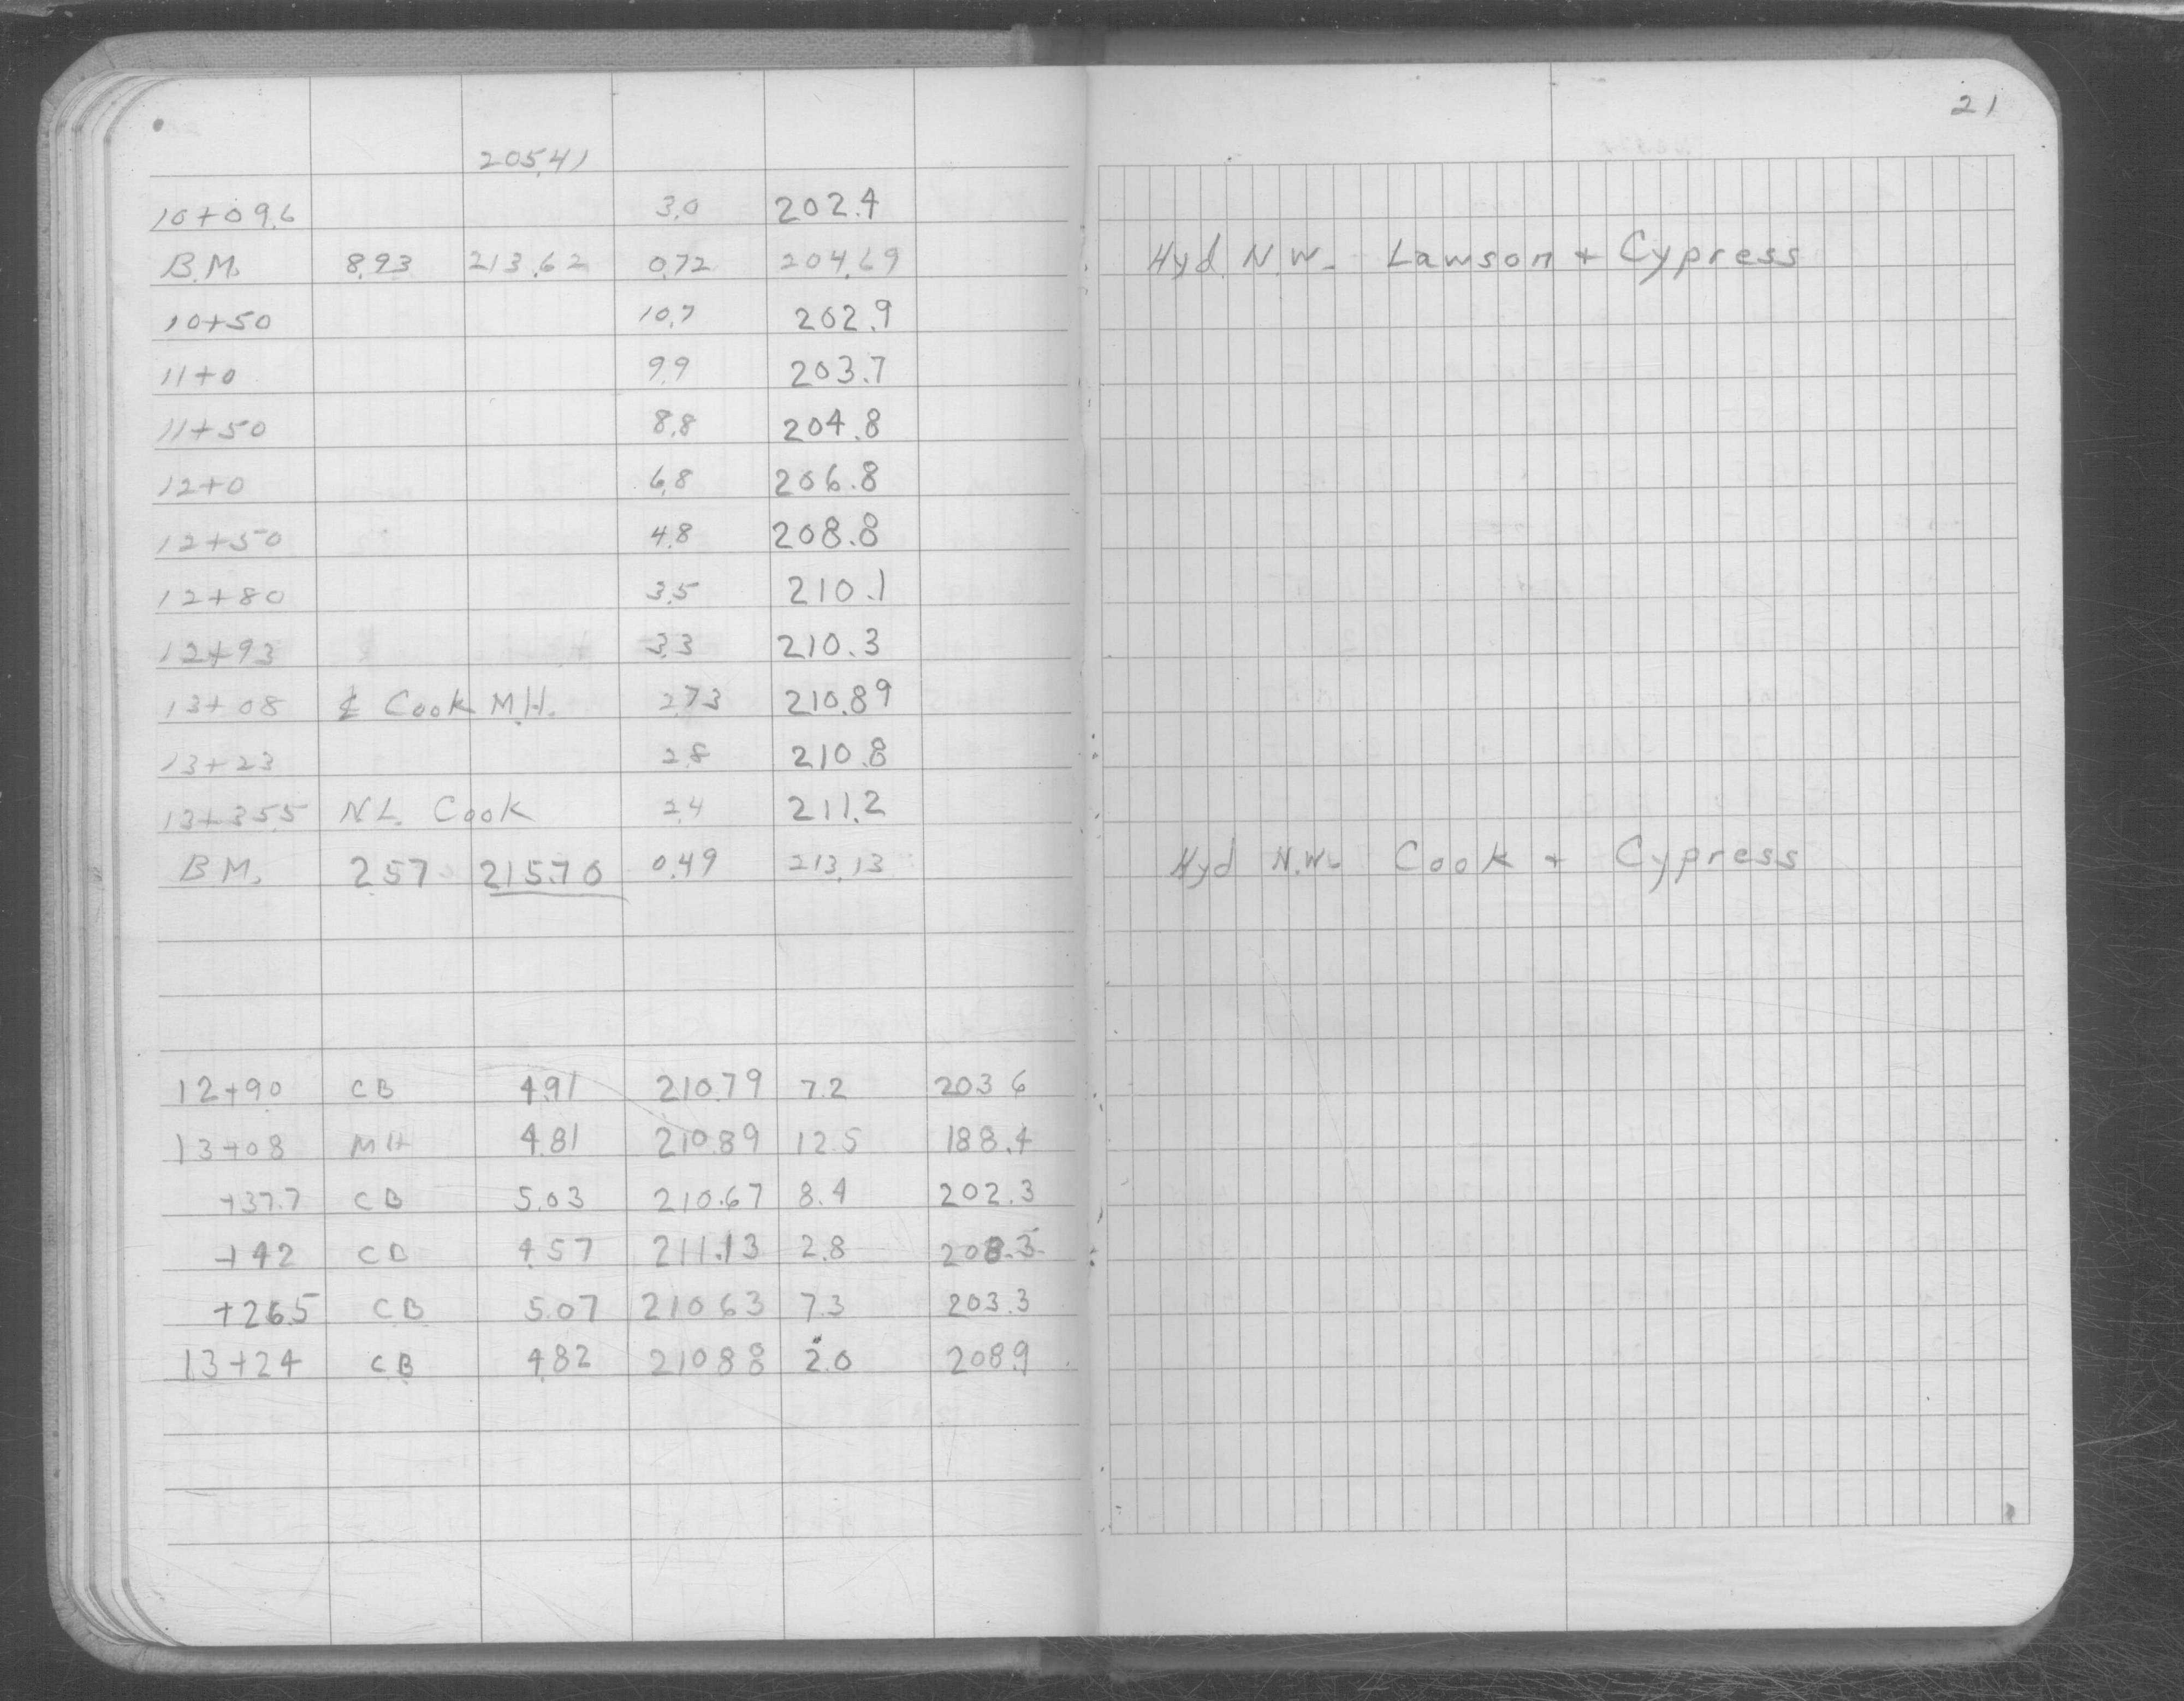 21
205.41
10+09.6 3.0 202.4
B.M. 8.93 213.62 0.72 204.69 Hyd. N.W. Lawson + Cypress
10+50 10.7 202.9
11+0 9.9 203.7
11+50 8.8 204.8
12+0 6.8 206.8
12+50 4.8 208.8
12+80 3.5 210.1
12+93 3.3 210.3
13+08 ℄ Cook M.H. 2.73 210.89
13+23 2.8 210.8
13+35.5 N.L. Cook 2.4 211.2
B.M. 2.57 215.70 0.49 213.13 Hyd N.W. Cook + Cypress
12+90 CB 4.91 210.79 7.2 203.6
13+08 MH 4.81 210.89 12.5 188.4
+37.7 CB 5.03 210.67 8.4 202.3
+42 CB 4.57 211.13 2.8 208.3
+26.5 CB 5.07 210.63 7.3 203.3
13+24 CB 4.82 210.88 2.0 208.9